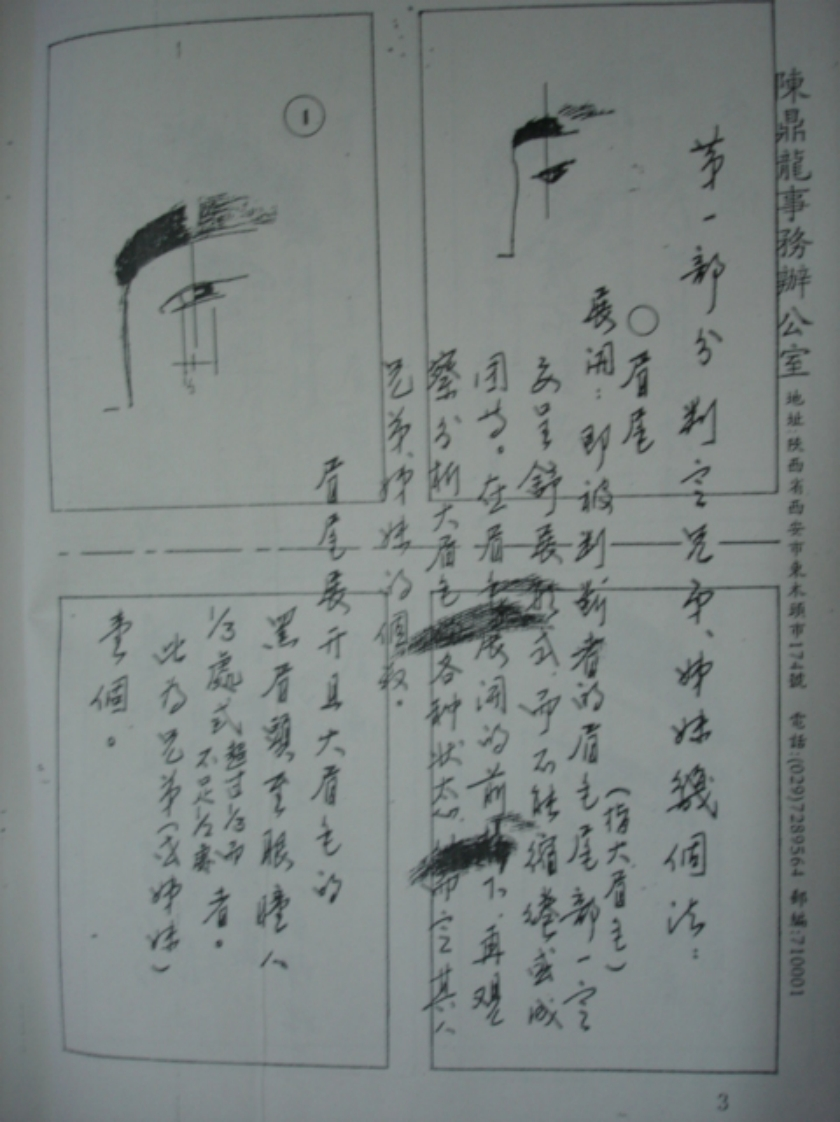 陳鼎龍事務辦公室 地址:陝西省西安市東木頭市174號 電話:(029)7289564 郵編:710001
第一部分 判定兄弟、姊妹幾個法:
○眉尾
(指大眉毛)
展開:即被判斷者的眉毛尾部一定
要呈舒展形式,而不能縮卷或成
团者。在眉毛展開的前提下,再观
察分析大眉毛的各种状态,判定其人
兄弟、姊妹的個数。
1
眉尾展开且大眉毛的
黑眉頭至眼瞳人
1/3處或超过1/3而不足1/2者。
此为兄弟(或姊妹)
壹個。
3